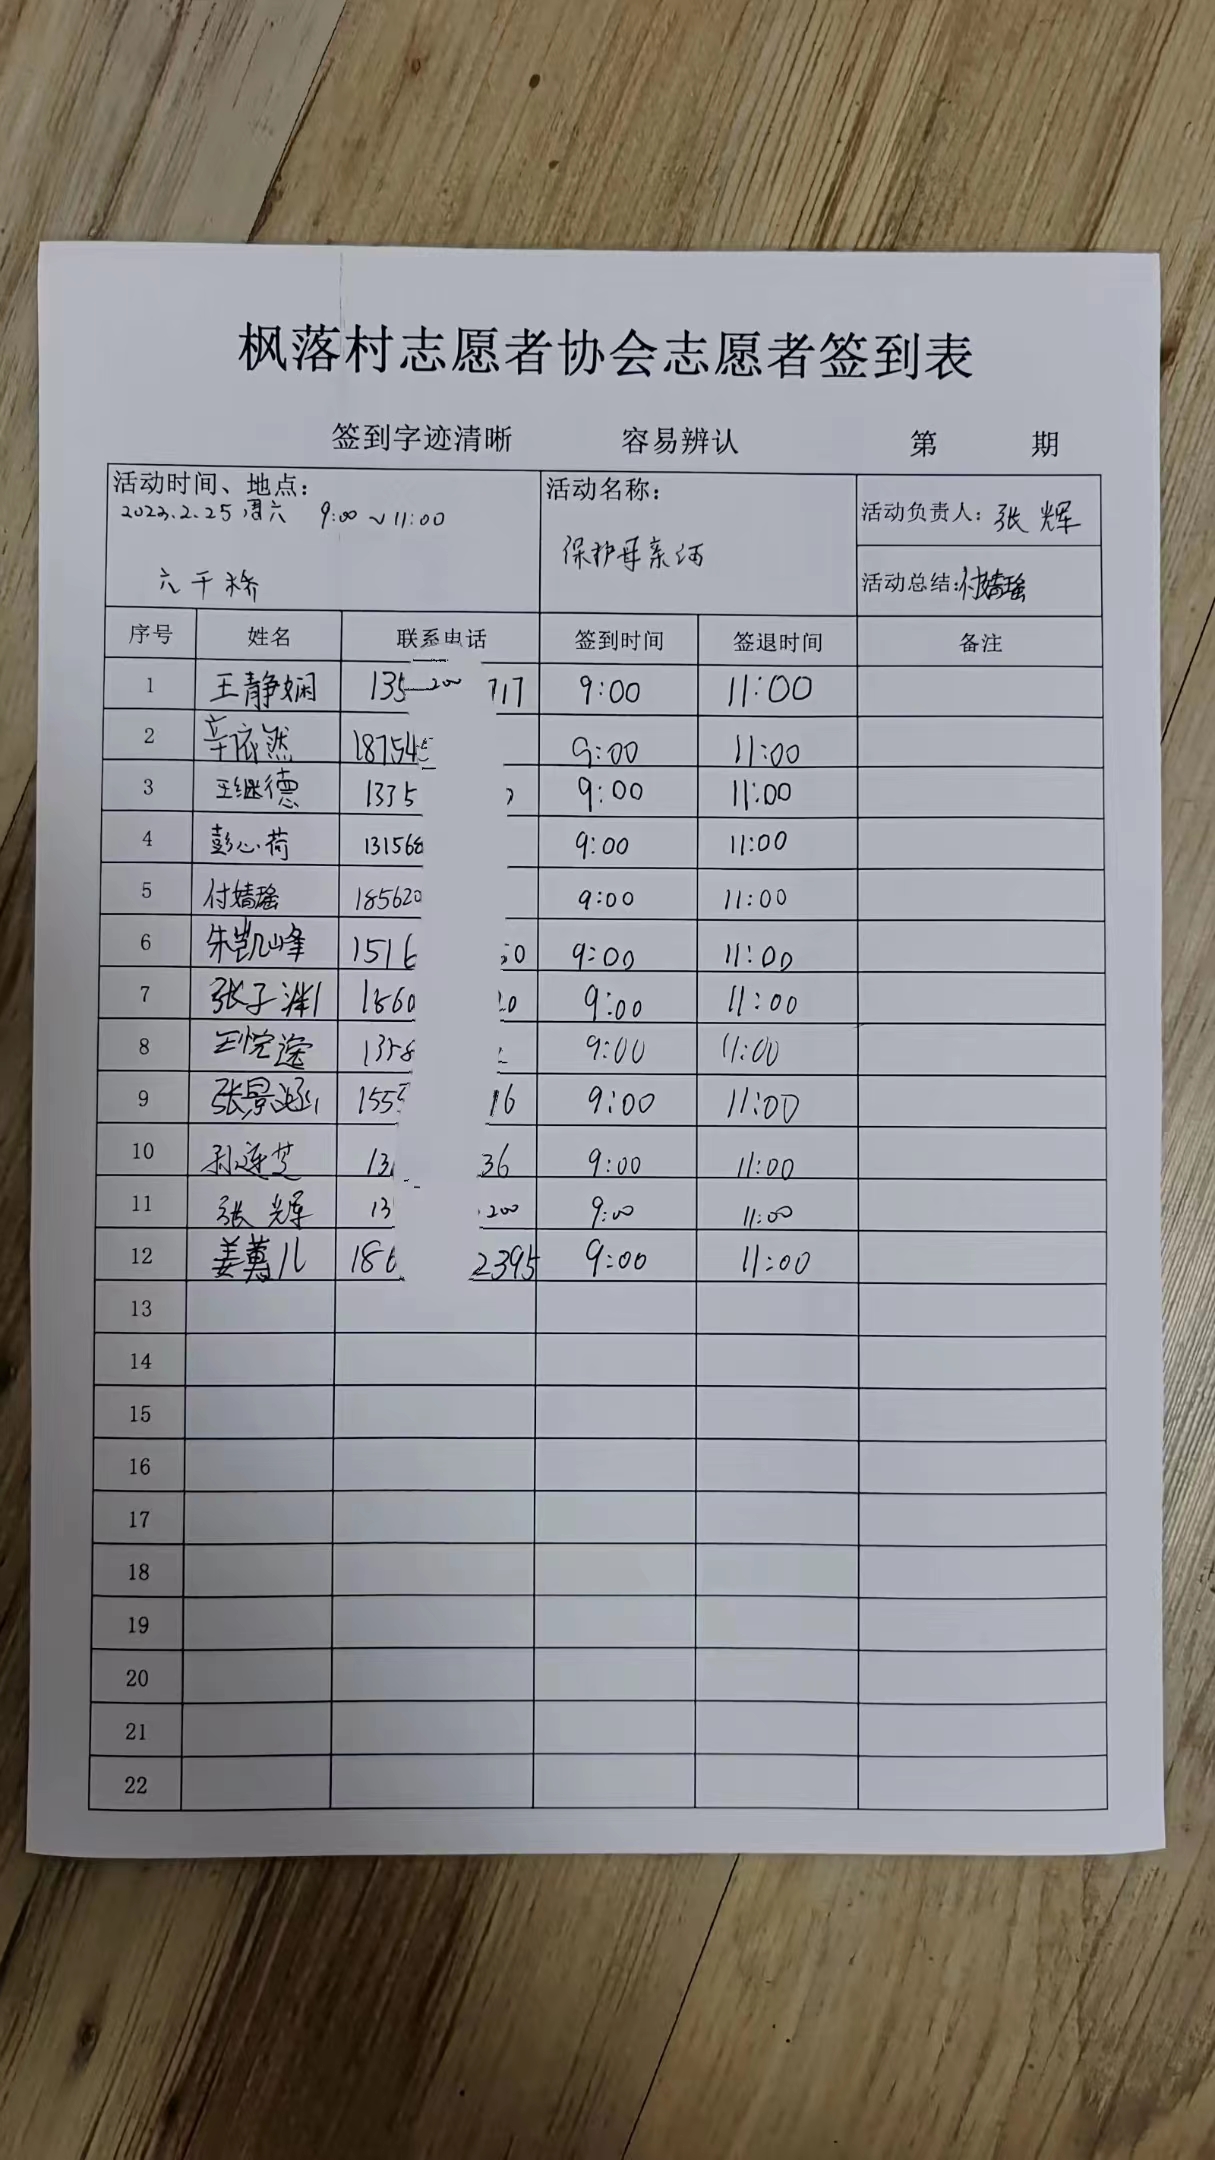 枫落村志愿者协会志愿者签到表
签到字迹清晰 容易辨认 第 期
活动时间、地点： 活动名称：
2023.2.25 周六 9:00~11:00 活动负责人：张辉
保护母亲河
六干桥 活动总结：付婧瑶
序号 姓名 联系电话 签到时间 签退时间 备注
1 王静娴 135 200 717 9:00 11:00
2 辛依然 18754 9:00 11:00
3 王继德 1335 9:00 11:00
4 彭心荷 13156 9:00 11:00
5 付婧瑶 185620 9:00 11:00
6 朱凯峰 1516 50 9:00 11:00
7 张子渊 1860 20 9:00 11:00
8 135 9:00 11:00
9 张景涵 155 16 9:00 11:00
10 孙莲芝 13 36 9:00 11:00
11 张辉 13 200 9:00 11:00
12 姜蕙儿 186 2395 9:00 11:00
13
14
15
16
17
18
19
20
21
22